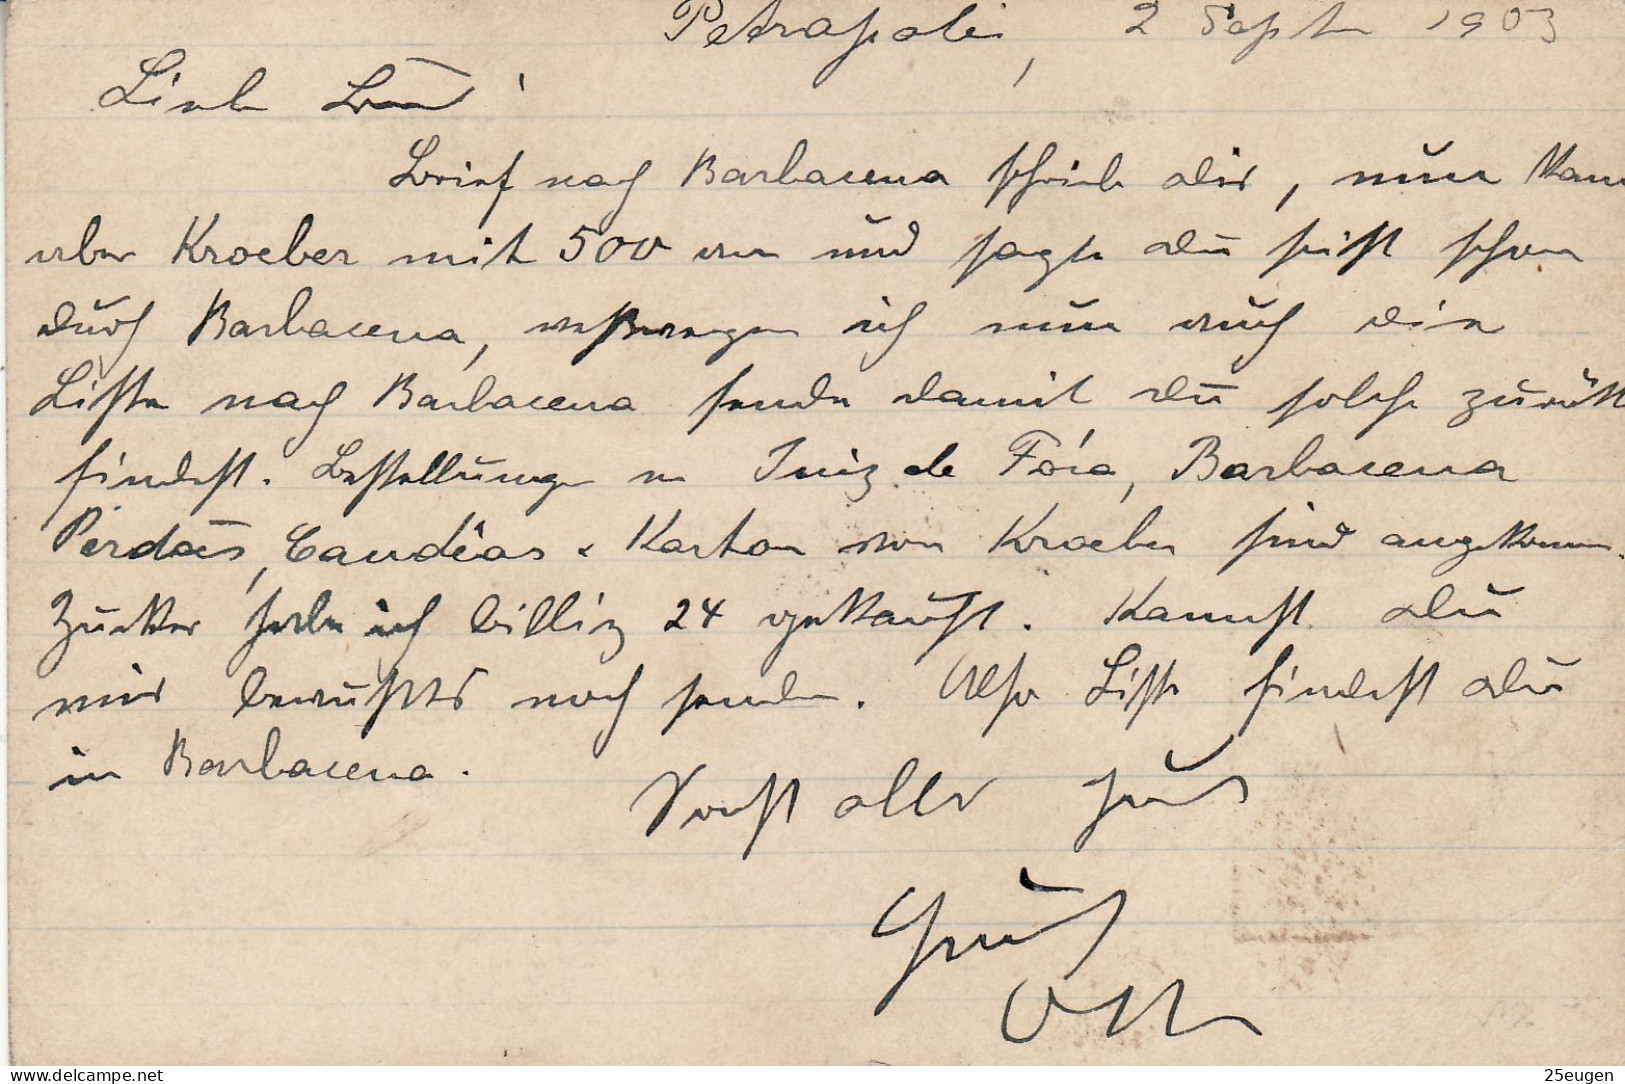 Petropolis, 2 Septr 1903
Liebe
Brief nach Barbacena schrieb dir, nun kam
aber Kroeber mit 500 an und sagte du seist schon
durch Barbacena, weswegen ich nun auch die
Liste nach Barbacena sende damit du solche zurück
findest. Bestellungen Juiz de Fóra, Barbacena
Perdões, Candêas & Karton von Kroeber sind angekomm.
Zucker habe ich billig 24 gekauft. Kannst du
mir bewußtes noch senden. Also Liste findest du
in Barbacena.
Sonst alles gut
Gruß
Otto
25eugen
https://www.delcampe.net